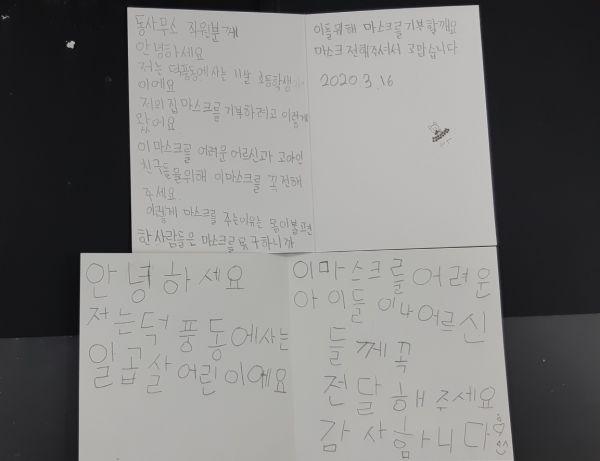 동사무소 직원분께
안녕하세요
저는 덕풍동에사는 11살 초등학생
이에요
저희집 마스크를 기부하려고 이렇게
왔어요
이 마스크를 어려운 어르신과 고아인
친구들을위해 이마스크를 꼭 전해
주세요.
이렇게 마스크를 주는이유는 몸이불편
한 사람들은 마스크를 못 구하니까
이들위해 마스크를 기부할께요
마스크 전해주셔서 고맙습니다
2020.3.16
안녕하세요
저는덕풍동에사는
일곱살어린이에요
이마스크를어려운
아이들이나어르신
들께꼭
전달해주세요
감사함니다